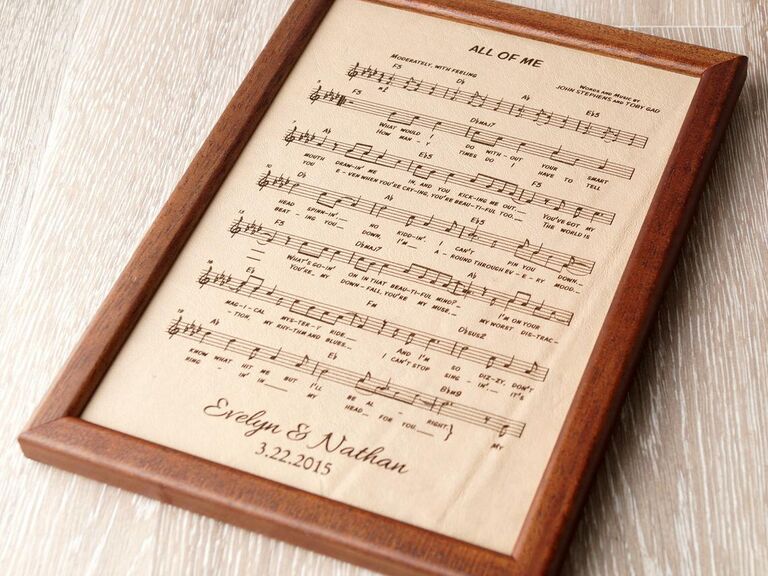 ALL OF ME
WORDS AND MUSIC BY
JOHN STEPHENS AND TOBY GAD
MODERATELY, WITH FEELING
F5 D♭ A♭ E♭5
F5 D♭MAJ7
WHAT WOULD I DO WITH-OUT YOUR SMART
HOW MAN-Y TIMES DO I HAVE TO TELL
A♭ E♭5 F5
MOUTH DRAW-IN' ME IN, AND YOU KICK-ING ME OUT. YOU'VE GOT MY
YOU E-VEN WHEN YOU'RE CRY-ING, YOU'RE BEAU-TI-FUL TOO. THE WORLD IS
10
D♭ A♭ E♭5
HEAD SPIN-NIN', NO KID-DIN', I CAN'T PIN YOU DOWN.
BEAT-ING YOU DOWN, I'M A-ROUND THROUGH EV-E-RY MOOD.
13
F5 D♭MAJ7 A♭
WHAT'S GO-IN' ON IN THAT BEAU-TI-FUL MIND? I'M ON YOUR
YOU'RE MY DOWN-FALL, YOU'RE MY MUSE, MY WORST DIS-TRAC-
16
E♭ FM D♭SUS2
MAG-I-CAL MYS-TER-Y RIDE. AND I'M SO DIZ-ZY, DON'T
-TION, MY RHY-THM AND BLUES. I CAN'T STOP SING-IN' IT'S
19
A♭ E♭ B♭M9
KNOW WHAT HIT ME BUT I'LL BE AL-RIGHT.
RING-IN' IN MY HEAD FOR YOU. MY
Evelyn & Nathan
3.22.2015